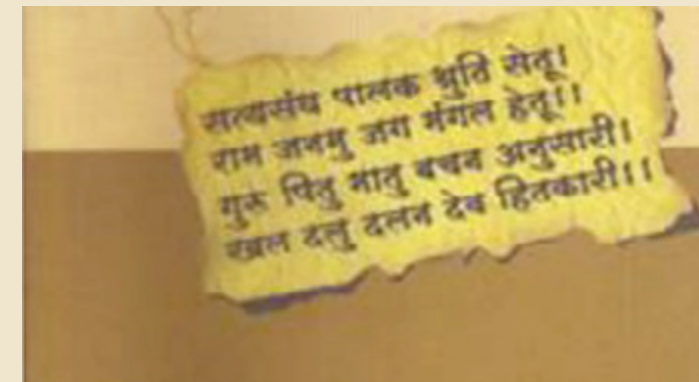 सत्यसंध पालक श्रुति सेतू।
राम जनमु जग मंगल हेतू।।
गुरु पितु मातु बचन अनुसारी।
खल दलु दलन देव हितकारी।।